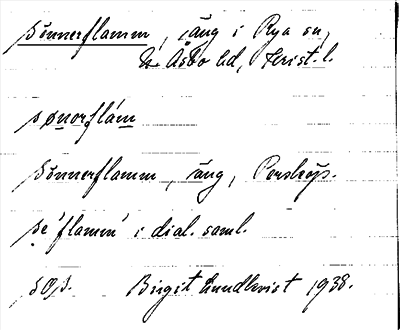 Sönnerflamm, äng i Rya sn,
N. Åsbo hd, Krist. l.
sønərflám
Sönnerflamm, äng, Perstorp.
se 'flamm' i dial. saml.
SOJ. Birgit Lundkvist 1938.